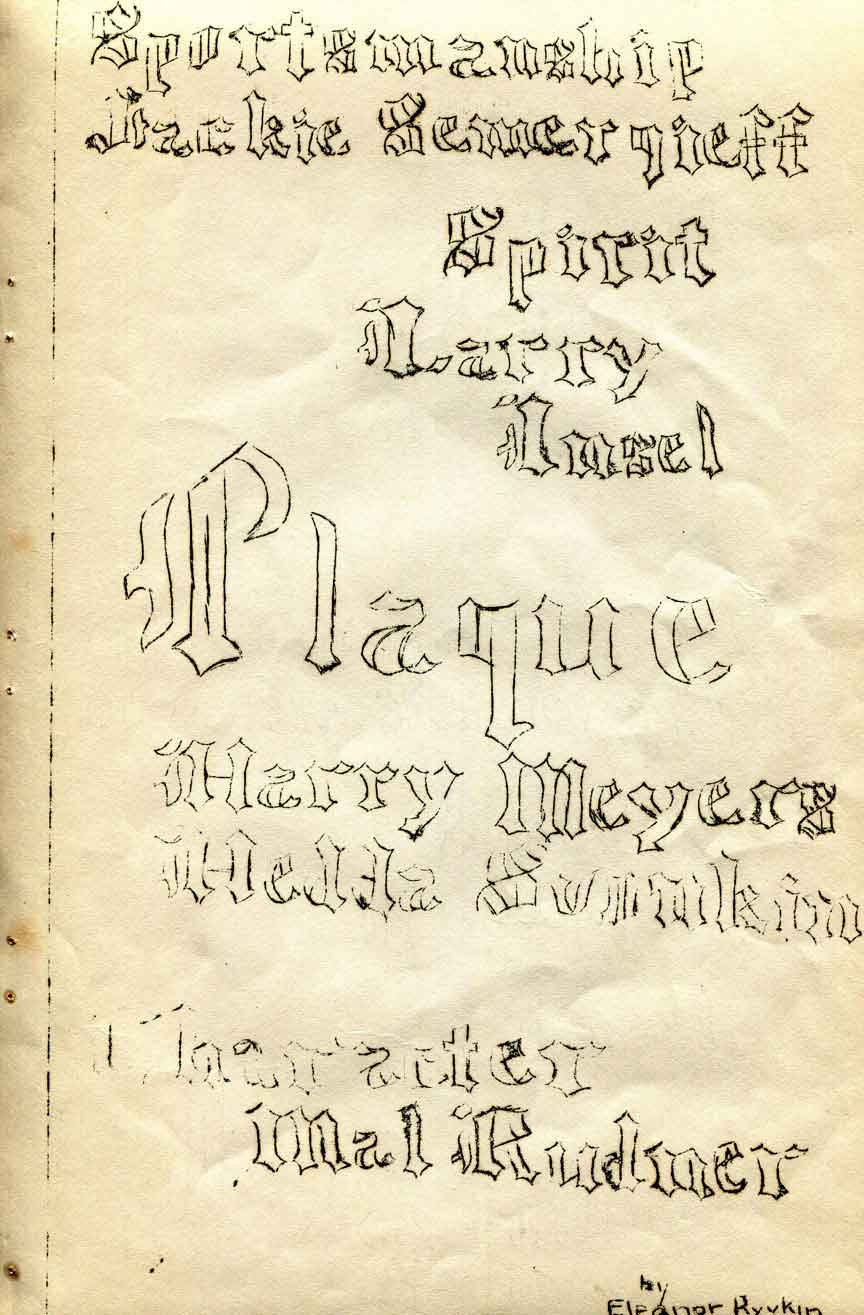 Sportsmanship
Jackie Semerqieff
Spirit
Larry
Insel
Plaque
Harry Meyers
Hella
Character
Mal Rudner
by
Eleanor Ryvkin